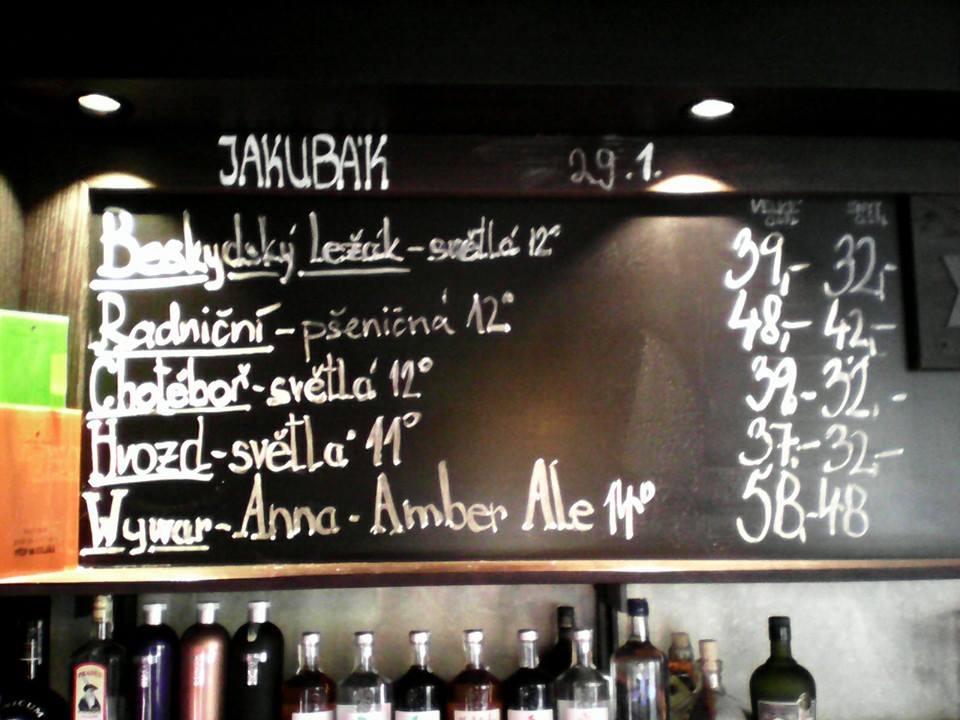 JAKUBÁK 29.1.
VELKÉ
Beskydský Ležák - světlá 12° 39,- 32,-
Radniční - pšeničná 12° 48,- 42,-
Chotěboř - světlá 12° 39,- 32,-
Hvozd - světlá 11° 37,- 32,-
Wywar - Anna - Amber Ale 14° 58,- 48